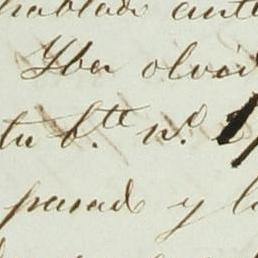 hablado ante
Yba olvid
tu b.te n.o
pasad y l